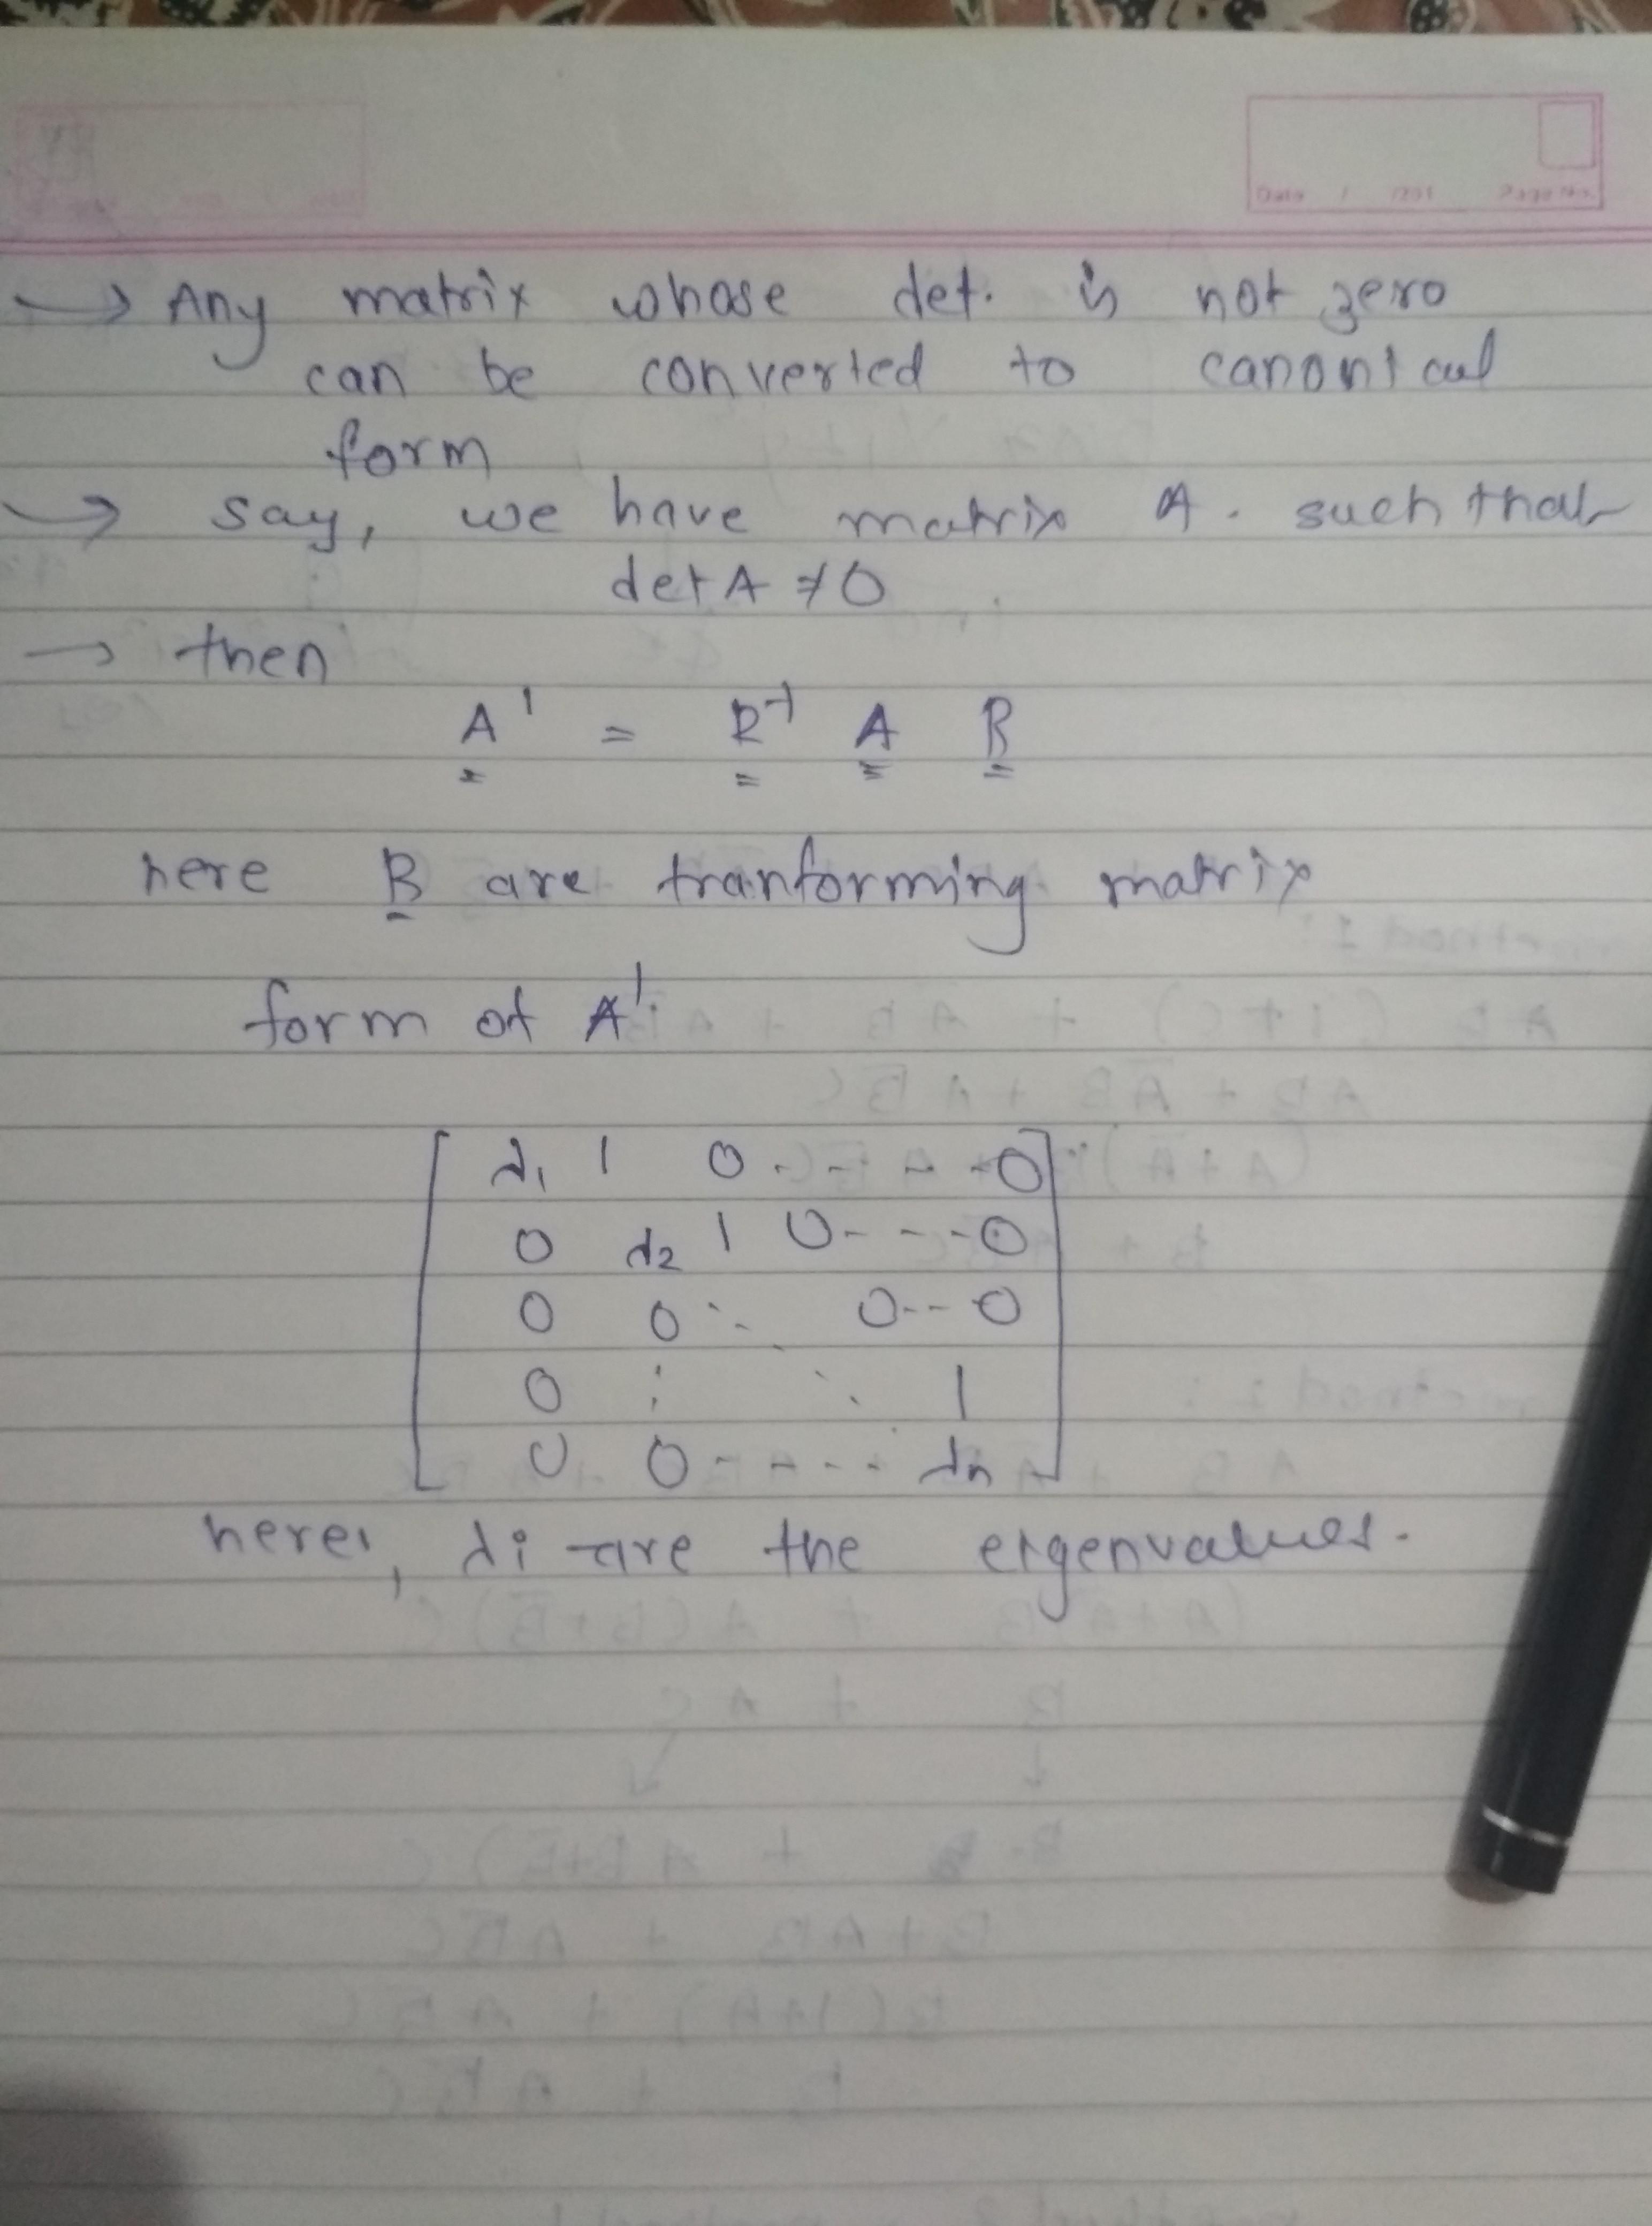 Date / /201 Page No.
→ Any matrix whose det. is not zero
can be converted to canonical
form
→ say, we have matrix A. such that
det A ≠ 0
→ then
A' = R⁻¹ A R
here R are tranforming matrix
form of A'
λ₁ 1 0 - - - - 0
0 λ₂ 1 0 - - - 0
0 0 ⋱ 0 - - 0
0 ⋮ ⋱ 1
0 0 - - - - λn
here, λi are the eigenvalues.